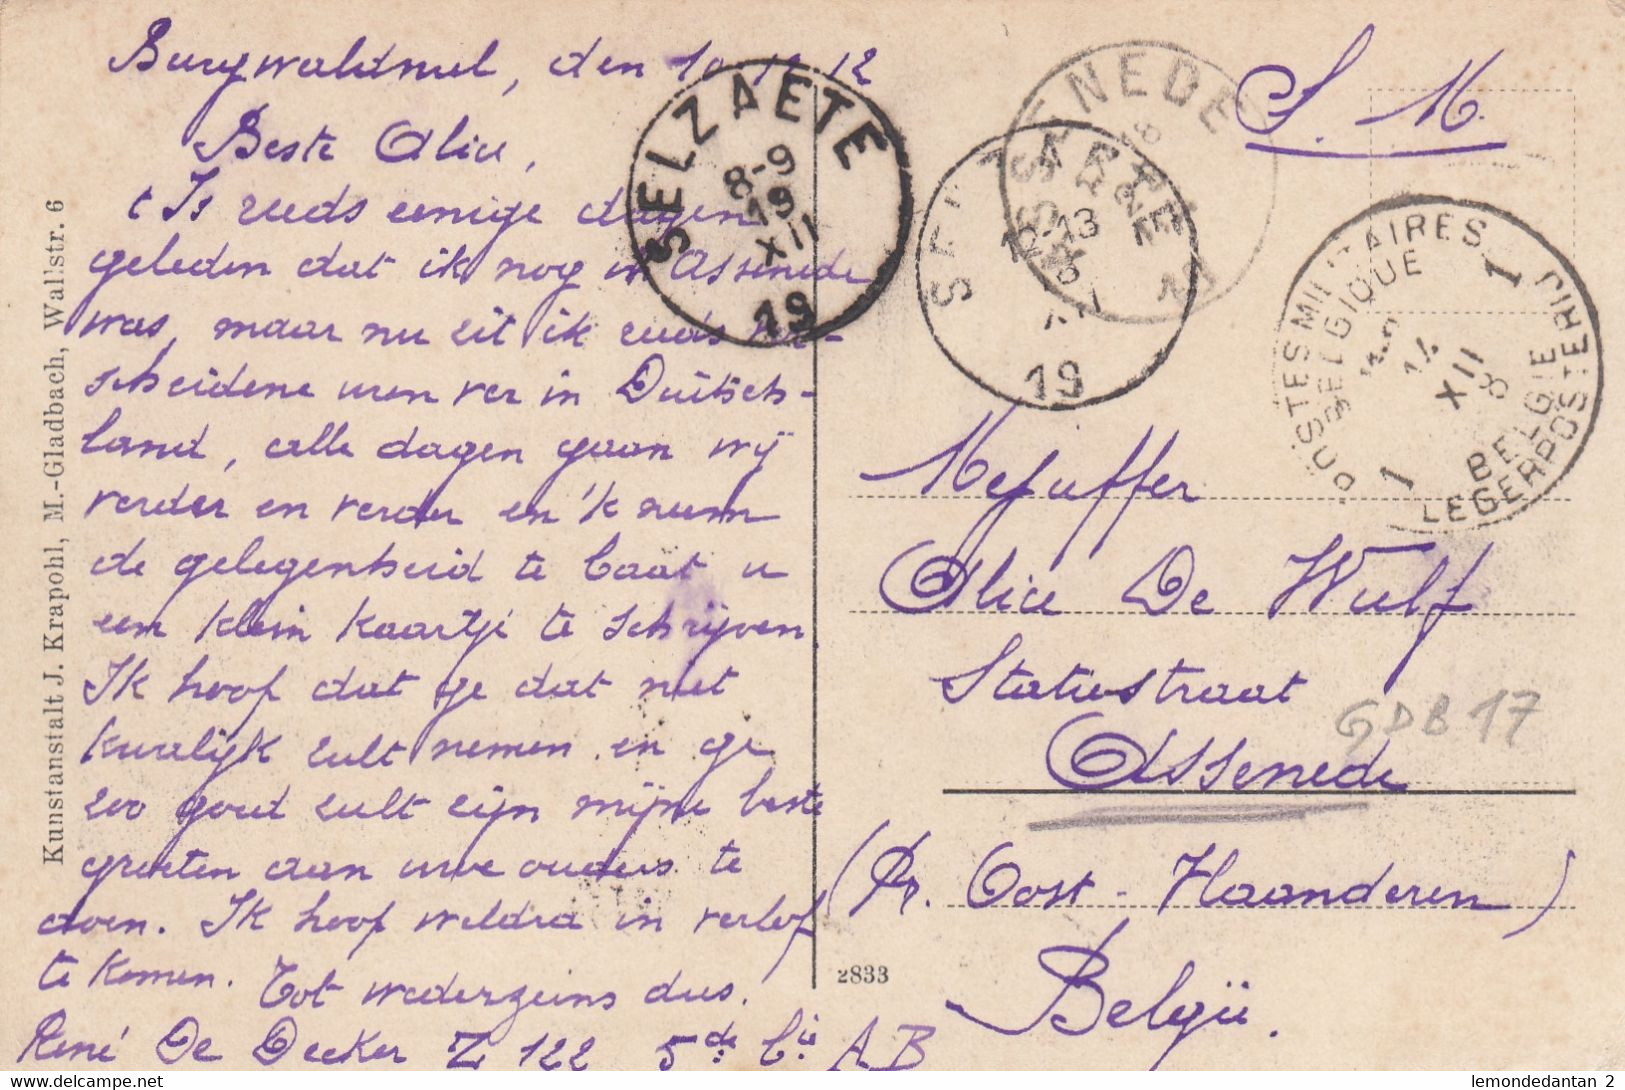 Burgwaldniel, den 10.12.12
Beste Alice,
t Is reeds eenige dagen
geleden dat ik nog in Assenede
was, maar nu zit ik reeds ver-
scheidene uren ver in Duitsch-
land, alle dagen gaan wij
verder en verder en 'k neem
de gelegenheid te baat u
een klein kaartje te schrijven
Ik hoop dat ge dat niet
kwalijk zult nemen en ge
zoo goed zult zijn mijne beste
groeten aan uwe ouders te
doen. Ik hoop weldra in verlof
te komen. Tot wederzeins dus.
René De Decker Z 122 5de bie AB
Kunstanstalt J. Krapohl, M.-Gladbach, Wallstr. 6
2833
S. M.
SELZAETE
8-9
19
XII
19
ASSENEDE
SELZAETE
12-13
19
POSTES MILITAIRES
BELGIQUE
1
14
XII
8
1
BELGIE
LEGERPOSTERIJ
Mejuffer
Alice De Wulf
Statiestraat
GDB 17
Assenede
(Pr. Oost-Vlaanderen)
België.
delcampe.net
lemondedantan 2